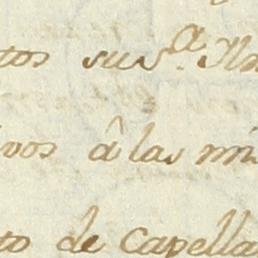 tos su s.ª Ilm
ivos â las mi
to de Capella